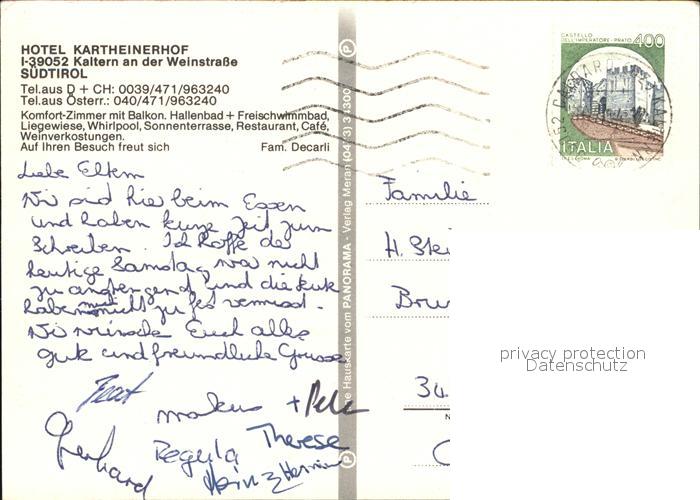 HOTEL KARTHEINERHOF
I-39052 Kaltern an der Weinstraße
SÜDTIROL
Tel.aus D + CH: 0039/471/963240
Tel.aus Österr.: 040/471/963240
Komfort-Zimmer mit Balkon. Hallenbad + Freischwimmbad,
Liegewiese, Whirlpool, Sonnenterrasse, Restaurant, Café,
Weinverkostungen.
Auf Ihren Besuch freut sich Fam. Decarli
Liebe Eltern
Wir sind hier beim Essen
und haben kurz Zeit zum
Schreiben. Ich hoffe der
heutige Samstag war nicht
zu anstrengend und die Leute
haben nicht zu fest vermisst.
Wir wünsche Euch alles
gute und freundliche Grüsse
Markus + Pele
Gerhard Regula Therese
Heinz Hermin
Eine Hauskarte vom PANORAMA - Verlag Meran
CASTELLO
DELL'IMPERATORE - PRATO 400
ITALIA
Familie
H. Stei
Bru
34
privacy protection
Datenschutz